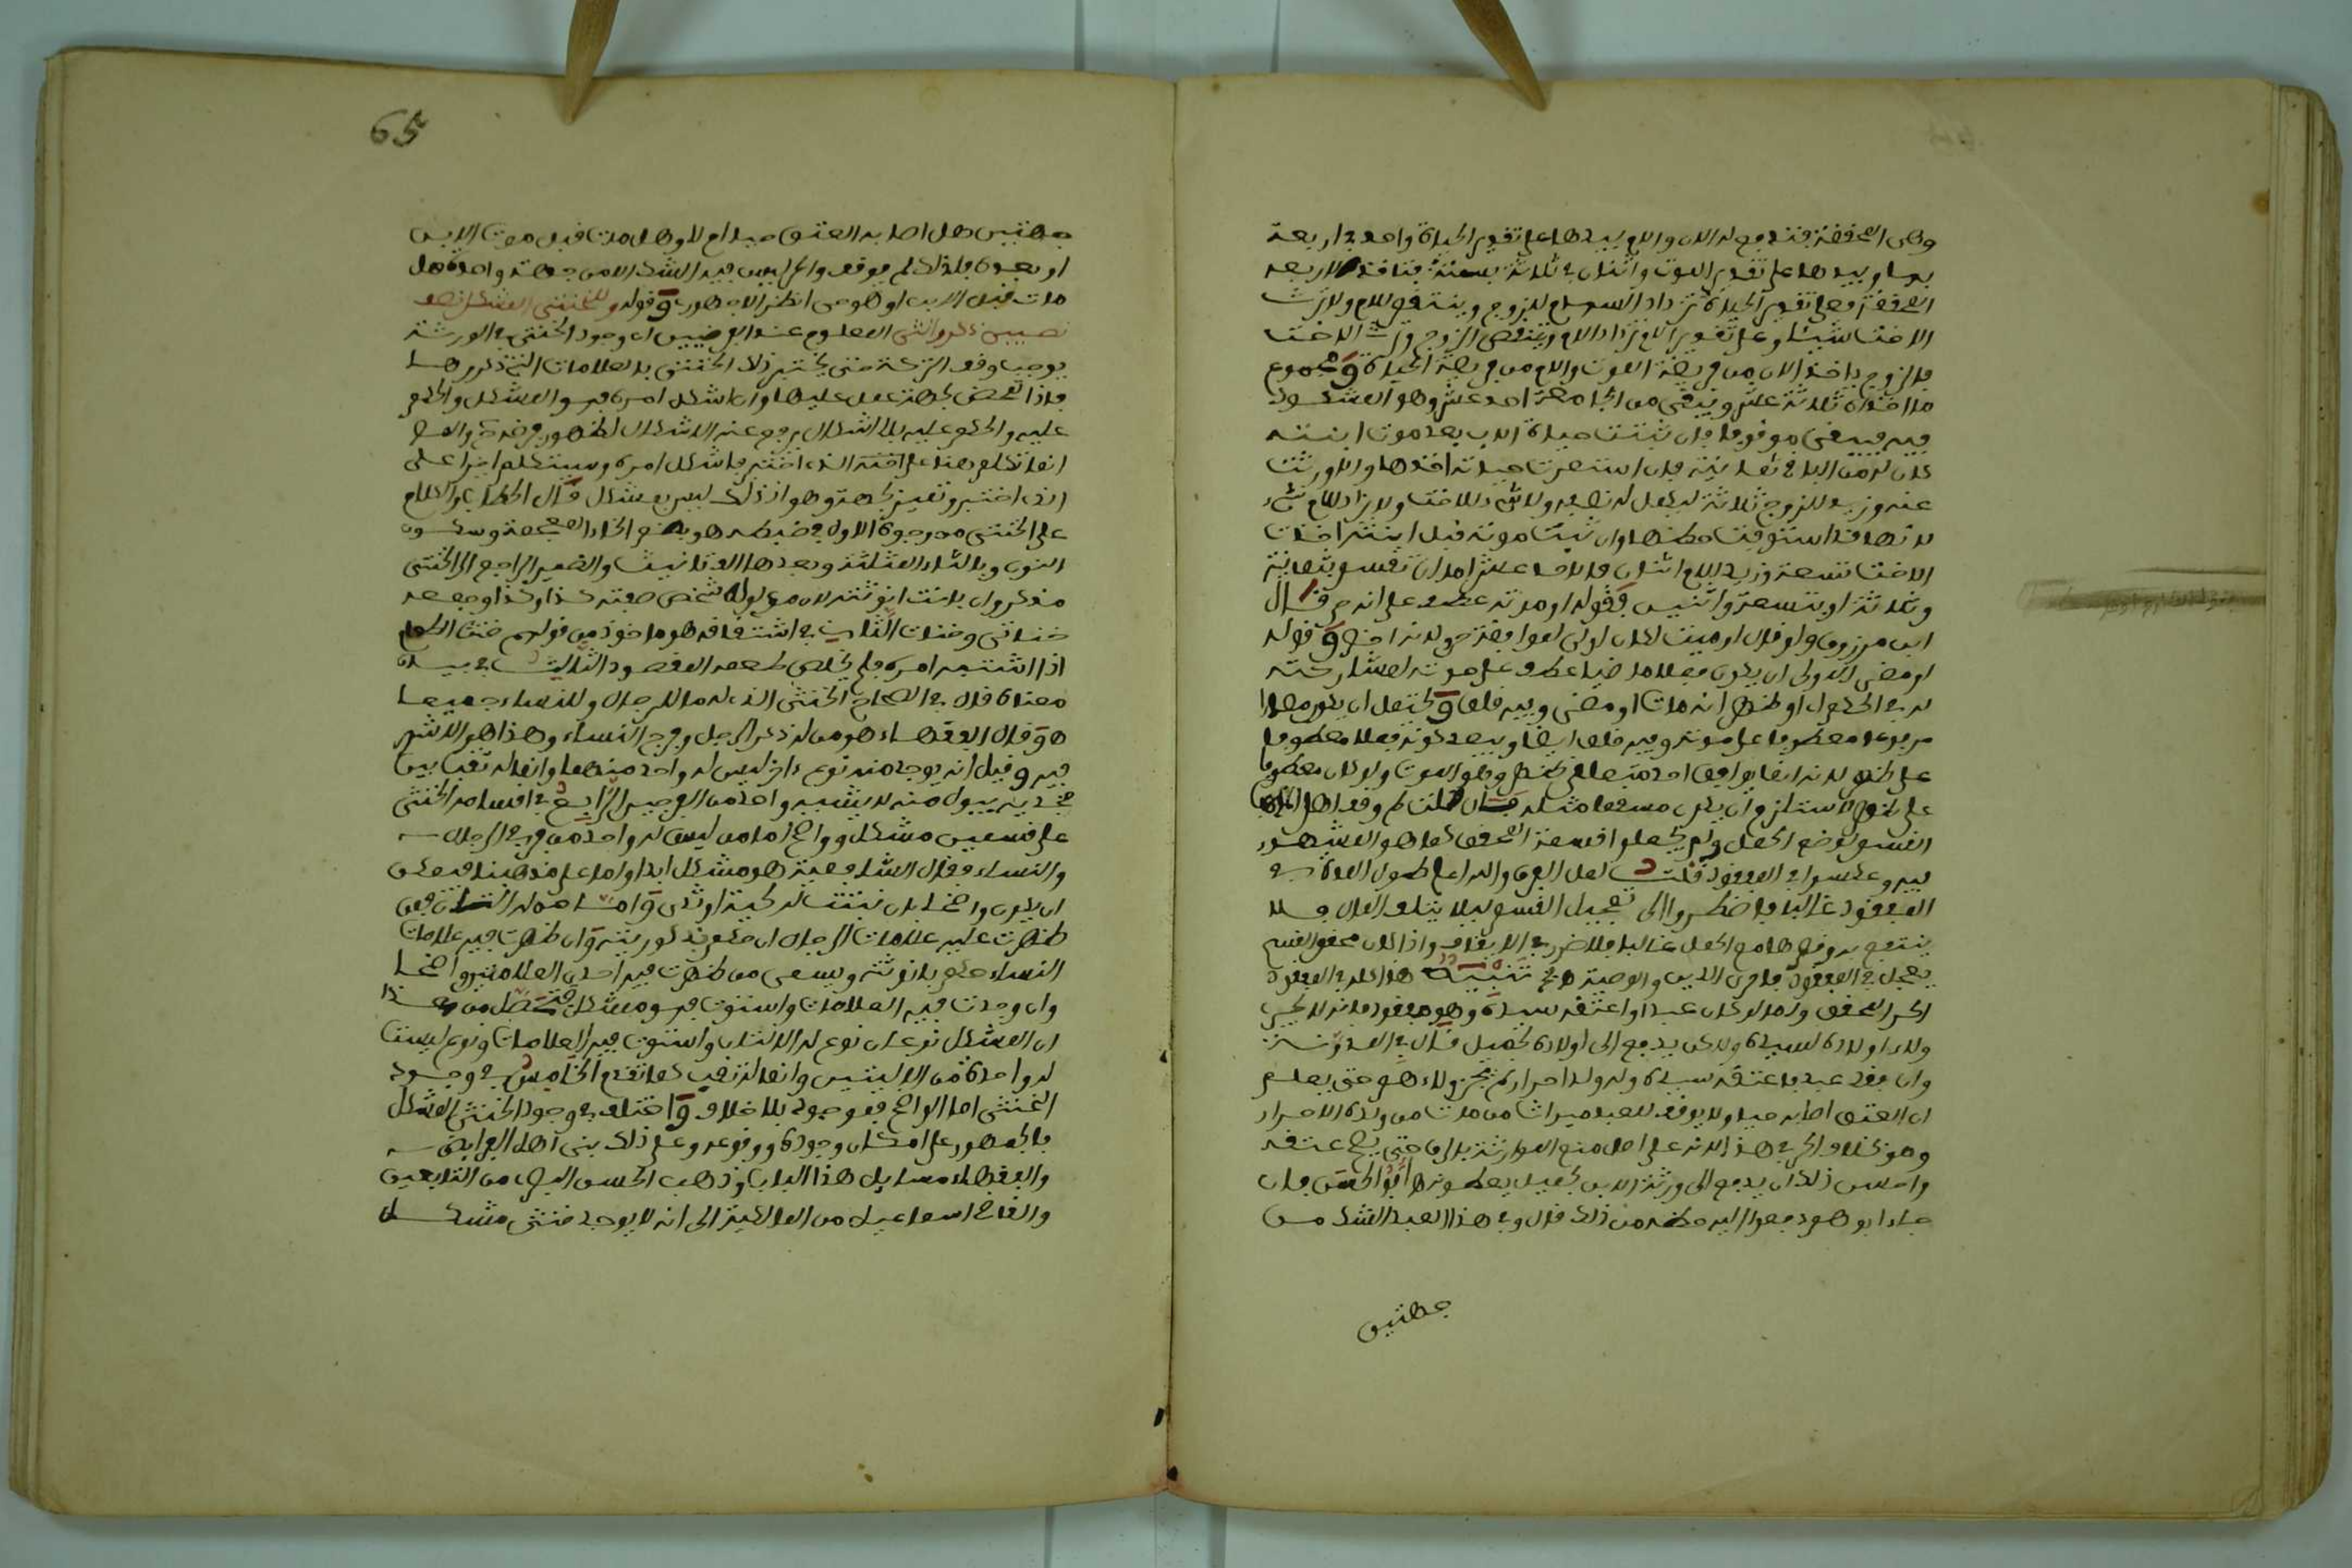 وهي المحققة فتدفع له الان والام بيدها على تقدير الحياة واحد في اربعة
باربعة وبيدها على تقدير الموت واثنان في ثلاثة بستة فتاخذ الاربعة
المحققة فعلى تقدير الحياة تزداد السهام للزوج وينتقص للام ولا ترث
الاخت شيئا وعلى تقدير الموت تزداد الام وينتقص الزوج وترث الاخت
فالزوج ياخذ الان من فريضة الموت والام من فريضة الحياة ومجموع
ما اخذاه ثلاثة عشر ويبقى من الجامعة احد عشر وهو المشكوك
فيه فيبقى موقوفا فان ثبتت حياة الاب بعد موت ابنته
كان له من الباقي ثمانية فان استمرت حياته اخذها والا ورثت
عنه وزيد للزوج ثلاثة ليكمل له نصيبه ولا شيء للاخت ولا تزاد للام شيء
لانها قد استوفت حظها وان ثبت موته قبل ابنته اخذت
الاخت تسعة وزيد الام اثنان فالاحد عشر اما ان تقسم بثمانية
وثلاثة او بتسعة واثنين فقوله او موته عطف على انه حي قال
ابن مرزوق ولو قال او ميت لكان اولى لموافقة حي لانه اخف وقوله
او مضى الاولى ان يكون فعلا ماضيا عطف على موته لمشاركته
له في الحكم اي او ظهر انه مات او مضى وفيه قلق ويحتمل ان يكون مصدرا
مرفوعا معطوفا على موته وفيه قلق ايضا ويبعد كونه فعلا معطوفا
على ظهر لانه انما يوافق احد متعلقي ظهر وهو الموت ولو كان معطوفا
على ظهر لاستلزم ان يكون مسمعا مثله فان قلت لم وقف اهل المذهب
القسم لوضع الحمل ولم يجعلوا قسمة المحقق كما هو المشهور
فيه وعكسوا في المفقود قلت لعل الفرق والله اعلم طول المدة في
المفقود غالبا فاضطروا الى تعجيل القسم ليلا يتلف المال فلا
ينتفع به وقصرها مع الحمل غالبا فلا ضرر في الايقاف واذا كان محقق القسم
يعجل في المفقود فاحرى الدين والوصية تنبيه هذا كله في المفقود
الحر المحقق واما لو كان عبدا واعتقه سيده وهو مفقود فانه لا يجر
ولاء اولاده لسيده ولكن يدفع الى اولاده بحميل قال في المدونة
وان فقد عبد فاعتقه سيده وله ولد احرار لم يجر ولاءهم حتى يعلم
ان العتق اصابه حيا ولا يوقف للعبد ميراث من مات من ولده الاحرار
وهو بخلاف الحر في هذا لانه على اصل منع الموارثة بالرق حتى يصح عتقه
واحسن ذلك ان يدفع الى ورثة الابن بحميل يعطونه ابو الحسن فان
جاء ابوهم دفعوا اليه حظه من ذلك قال وفي هذا العبد الشك من
جهتين
65
جهتين هل اصابه العتق حيا ام لا وهل مات قبل موت الابن
او بعده فلذلك لم يوقف والحر ليس فيه الشك الا من جهة واحدة هل
مات قبل الابن او هو حي انظر الاجهوري وقوله وللخنثى المشكل نصف
نصيبي ذكر وانثى المعلوم عند الفرضيين ان وجود الخنثى في الورثة
يوجب وقف التركة حتى يختبر ذلك الخنثى بالعلامات التي ذكروها
فاذا تمحض لجهة عمل عليها وان اشكل امره فهو المشكل والحكم
عليه والحكم عليه بالاشكال يرفع عنه الاشكال لظهور مرجح والمص
انما تكلم هنا على الخنثى الذي اختبر فاشكل امره وسيتكلم اخرا على
الذي اختبر وتميز لجهة وهو اذ ذلك ليس بمشكل قال الحطاب والكلام
على الخنثى من وجوه الاول في ضبطه هو بضم الخاء المعجمة وسكون
النون وبالثاء المثلثة وبعدها الف تانيث والضمير الراجع الى الخنثى
مذكر وان بانت انوثته لان مدلوله شخص صفته كذا وكذا وجمعه
خناثى وخناث الثاني في اشتقاقه هو ماخوذ من قولهم خنث الطعام
اذا اشتبه امره فلم يخلص طعمه المقصود الثالث في بيان
معناه قال في الصحاح الخنثى الذي له ما للرجال وللنساء جميعا
هو وقال الفقهاء هو من له ذكر الرجل وفرج النساء وهذا هو الاشهر
فيه وقيل انه يوجد منه نوع اخر ليس له واحد منهما وانما له ثقب بين
فخذيه يبول منه لا يشبه واحد من الفرجين الرابع في اقسامه الخنثى
على قسمين مشكل وواضح اما من ليس له واحد من فرجي الرجال
والنساء فقال الشافعية هو مشكل ابدا واما على مذهبنا فيمكن
ان يكون واضحا بان نبتت له لحية او ثدي واما من له الالتان فمن
ظهرت عليه علامات الرجال ان حكم بذكوريته وان ظهرت فيه علامات
النساء حكم بانوثته ويسمى من ظهرت فيه احدى العلامتين واضحا
وان وجدت فيه العلامات واستوت فهو مشكل فتحصل من هذا
ان المشكل نوعان نوع له الالتان واستوت فيه العلامات ونوع ليست
له واحدة من الالتين وانما له ثقب كما تقدم الخامس في وجود
الخنثى اما الواضح فموجود بلا خلاف واختلف في وجود الخنثى المشكل
فالجمهور على امكان وجوده ووقوعه وعلى ذلك بنى اهل الفرايض
والفقهاء مسايل هذا الباب وذهب الحسن البصري من التابعين
والقاضي اسماعيل من المالكية الى انه لا يوجد خنثى مشكل